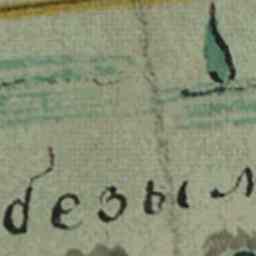 безы